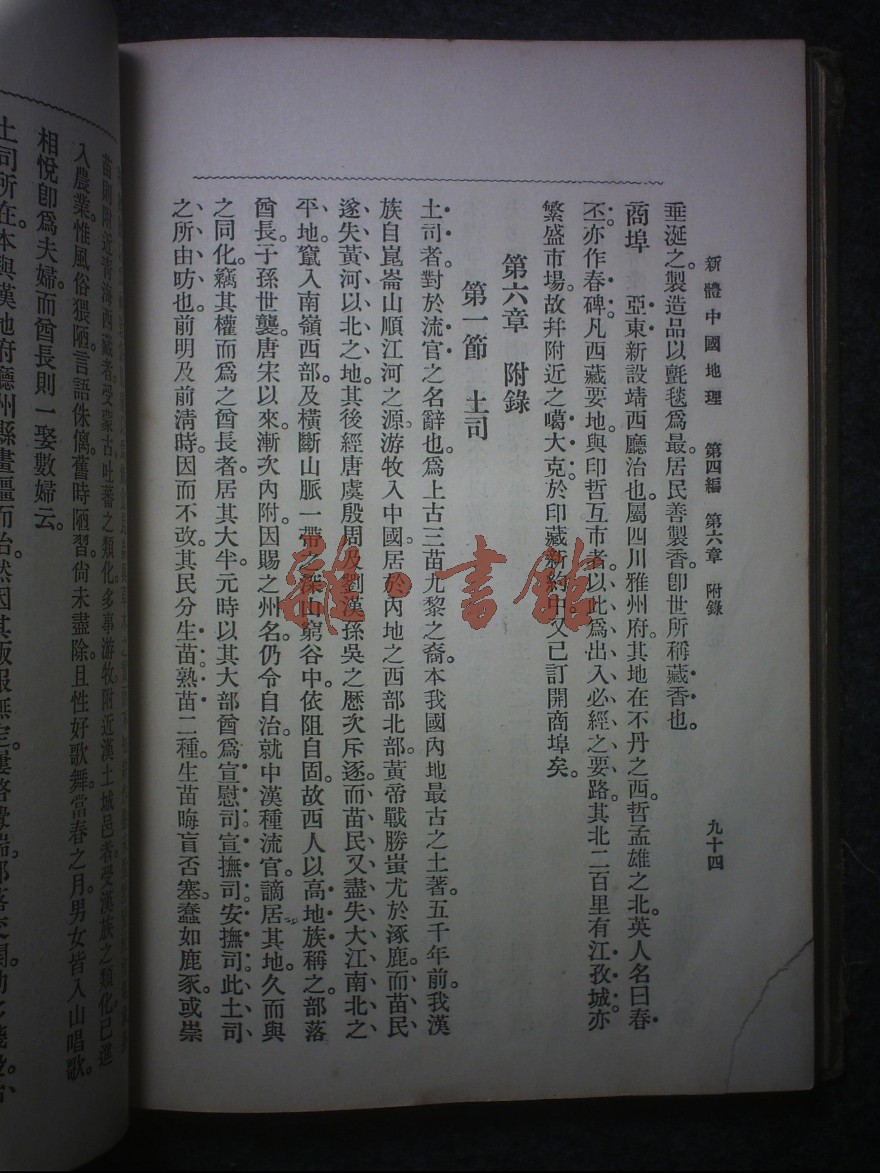 新體中國地理 第四編 第六章 附錄 九十四
垂涎之。製造品以氈毯爲最。居民善製香。卽世所稱藏香也。
商埠 亞東新設靖西廳治也。屬四川雅州府。其地在不丹之西。哲孟雄之北。英人名曰春
丕。亦作春碑。凡西藏要地。與印哲互市者。以此爲出入必經之要路。其北二百里有江孜城。亦
繁盛市場。故幷附近之噶大克。於印藏新約中。又已訂開商埠矣。
第六章 附錄
第一節 土司
土司者。對於流官之名辭也。爲上古三苗九黎之裔。本我國內地最古之土著。五千年前。我漢
族自崑崙山順江河之源。游牧入中國。居於內地之西部北部。黃帝戰勝蚩尤於涿鹿。而苗民
遂失黃河以北之地。其後經唐虞殷周及劉漢孫吳之歷次斥逐。而苗民又盡失大江南北之
平地。竄入南嶺西部。及橫斷山脈一帶之深山窮谷中。依阻自固。故西人以高地族稱之。部落
酋長。子孫世襲。唐宋以來。漸次內附。因賜之州名。仍令自治。就中漢種流官。謫居其地。久而與
之同化。竊其權而爲之酋長者。居其大半。元時以其大部酋爲宣慰司宣撫司安撫司。此土司
之所由昉也。前明及前淸時。因而不改。其民分生苗熟苗二種。生苗晦盲否塞。蠢如鹿豕。或崇
雜·書館
苗則附近靑海西藏者。受蒙古吐蕃之類化。多事游牧。附近漢土城邑者。受漢族之類化。已進
入農業。惟風俗猥陋。言語侏㒧。舊時陋習。尙未盡除。且性好歌舞。當春之月。男女皆入山唱歌。
相悅卽爲夫婦。而酋長則一娶數婦云。
土司所在。本與漢地府廳州縣畫疆而治。然因其叛服無定。屢啓